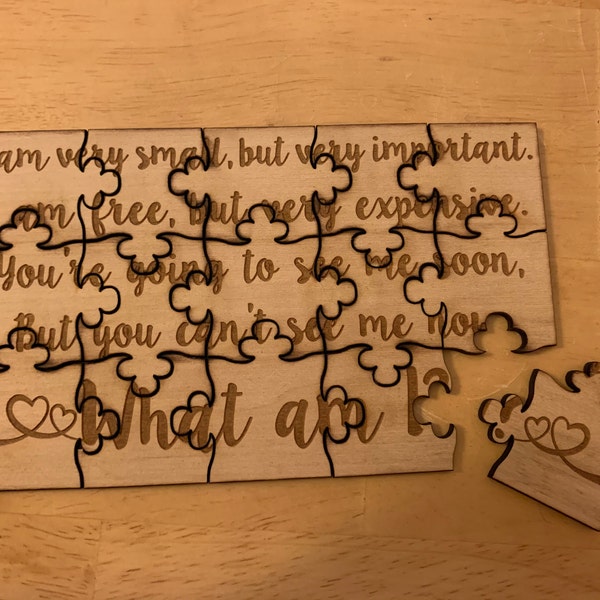 am very small, but very important.
am free, but very expensive.
You're going to see me soon,
But you can't see me now.
What am I?